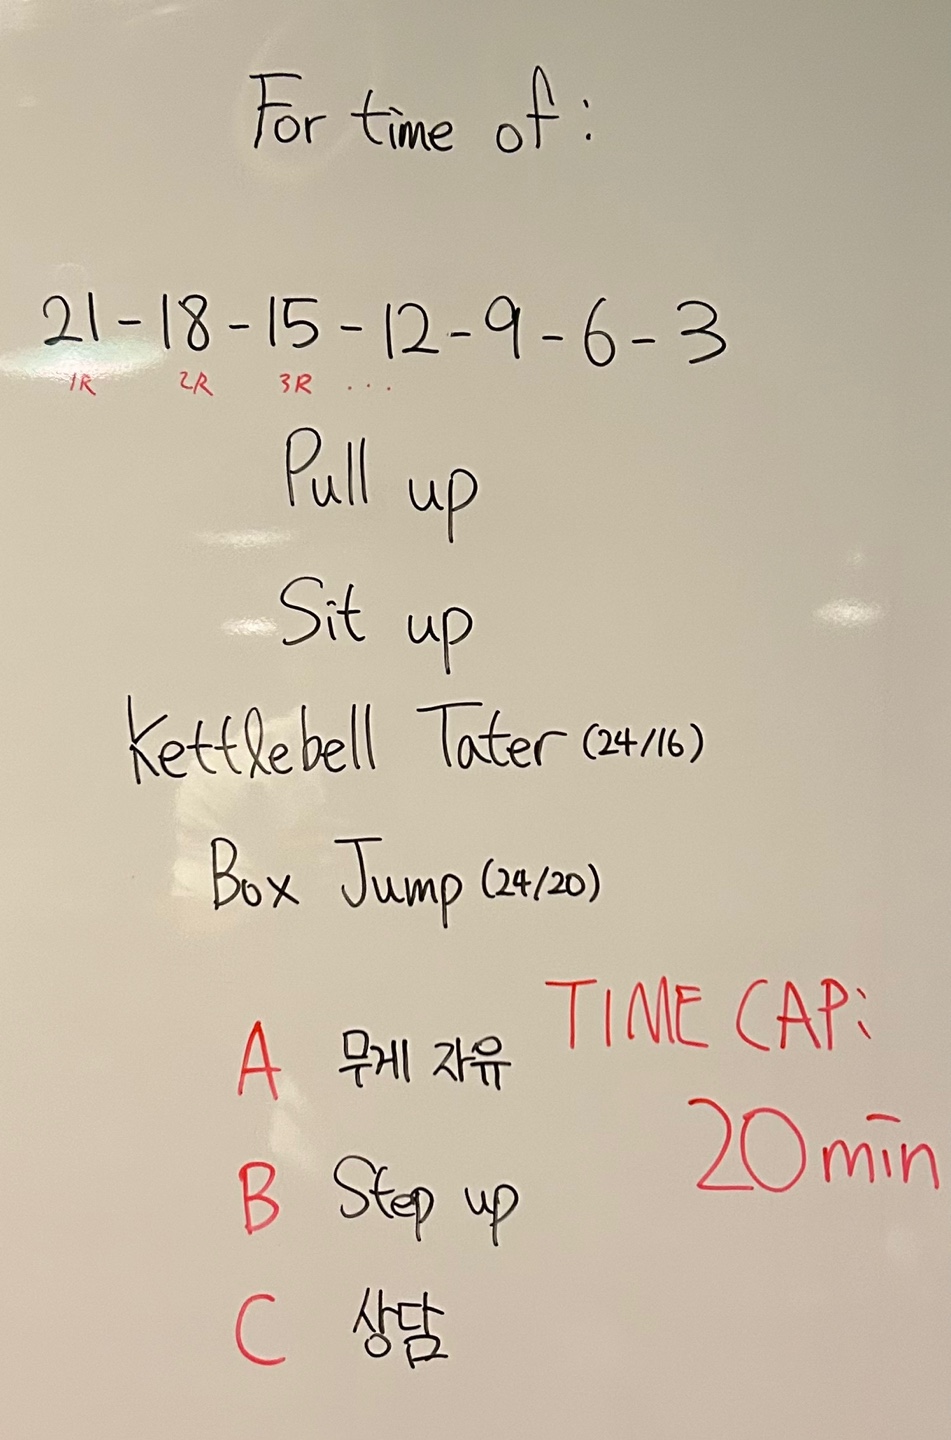 For time of:
21-18-15-12-9-6-3
1R 2R 3R ...
Pull up
Sit up
Kettlebell Tater (24/16)
Box Jump (24/20)
TIME CAP:
20min
A 무게 자유
B Step up
C 상담